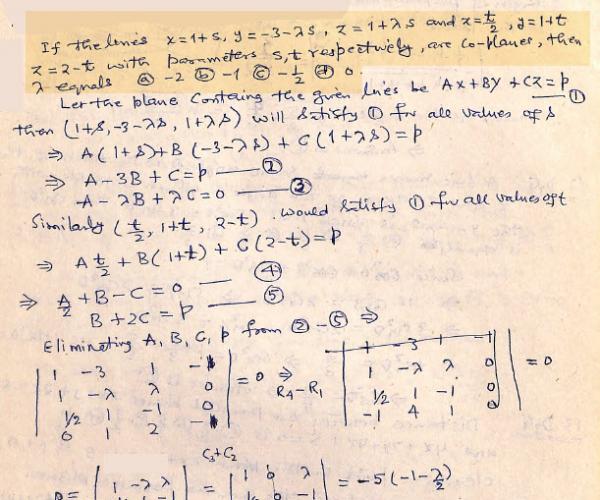 If the lines x=1+s, y=-3-λs, z=1+λs and x=t/2, y=1+t
z=2-t with parameters s,t respectively, are co-planer, then
λ equals (a) -2 (b) -1 (c) -1/2 (d) 0
Let the plane Containg the given lines be Ax+By+Cz=p —①
then (1+s, -3-λs, 1+λs) will satisfy ① for all values of s
⇒ A(1+s)+B(-3-λs)+C(1+λs)=p
⇒ A-3B+C=p —②
A-λB+λC=0 —③
Similarly (t/2, 1+t, 2-t). would satisfy ① for all values of t
⇒ A t/2 + B(1+t) + C(2-t)=p
⇒ A/2 +B-C=0 —④
B+2C=p —⑤
Eliminating A, B, C, p from ②-⑤ ⇒
| 1 -3 1 | | 1 -3 1 -1 |
| 1 -λ λ 0 | =0 ⇒ | 1 -λ λ 0 | =0
| 1/2 1 -1 0 | R4-R1 | 1/2 1 -1 0 |
| 0 1 2 | | -1 4 1 0 |
C3+C2
| 1 -λ λ | = | 1 0 λ | = -5(-1-λ/2)